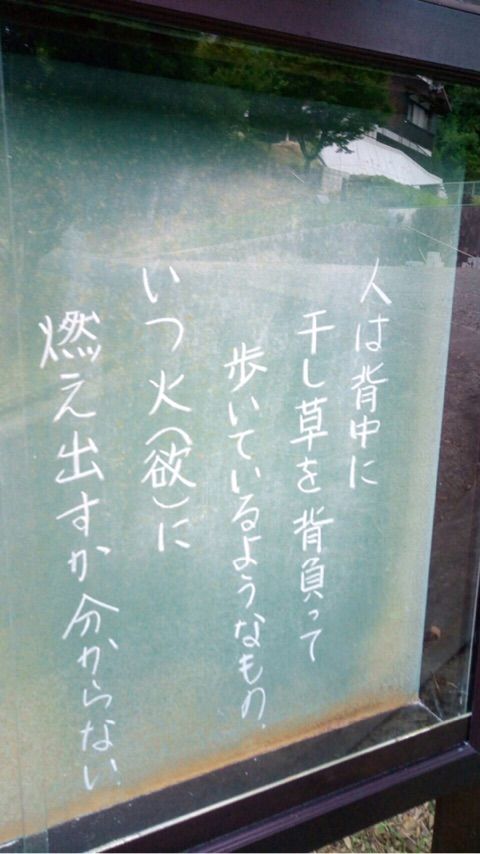 人は背中に
干し草を背負って
歩いているようなもの.
いつ火(欲)に
燃え出すか分からない.